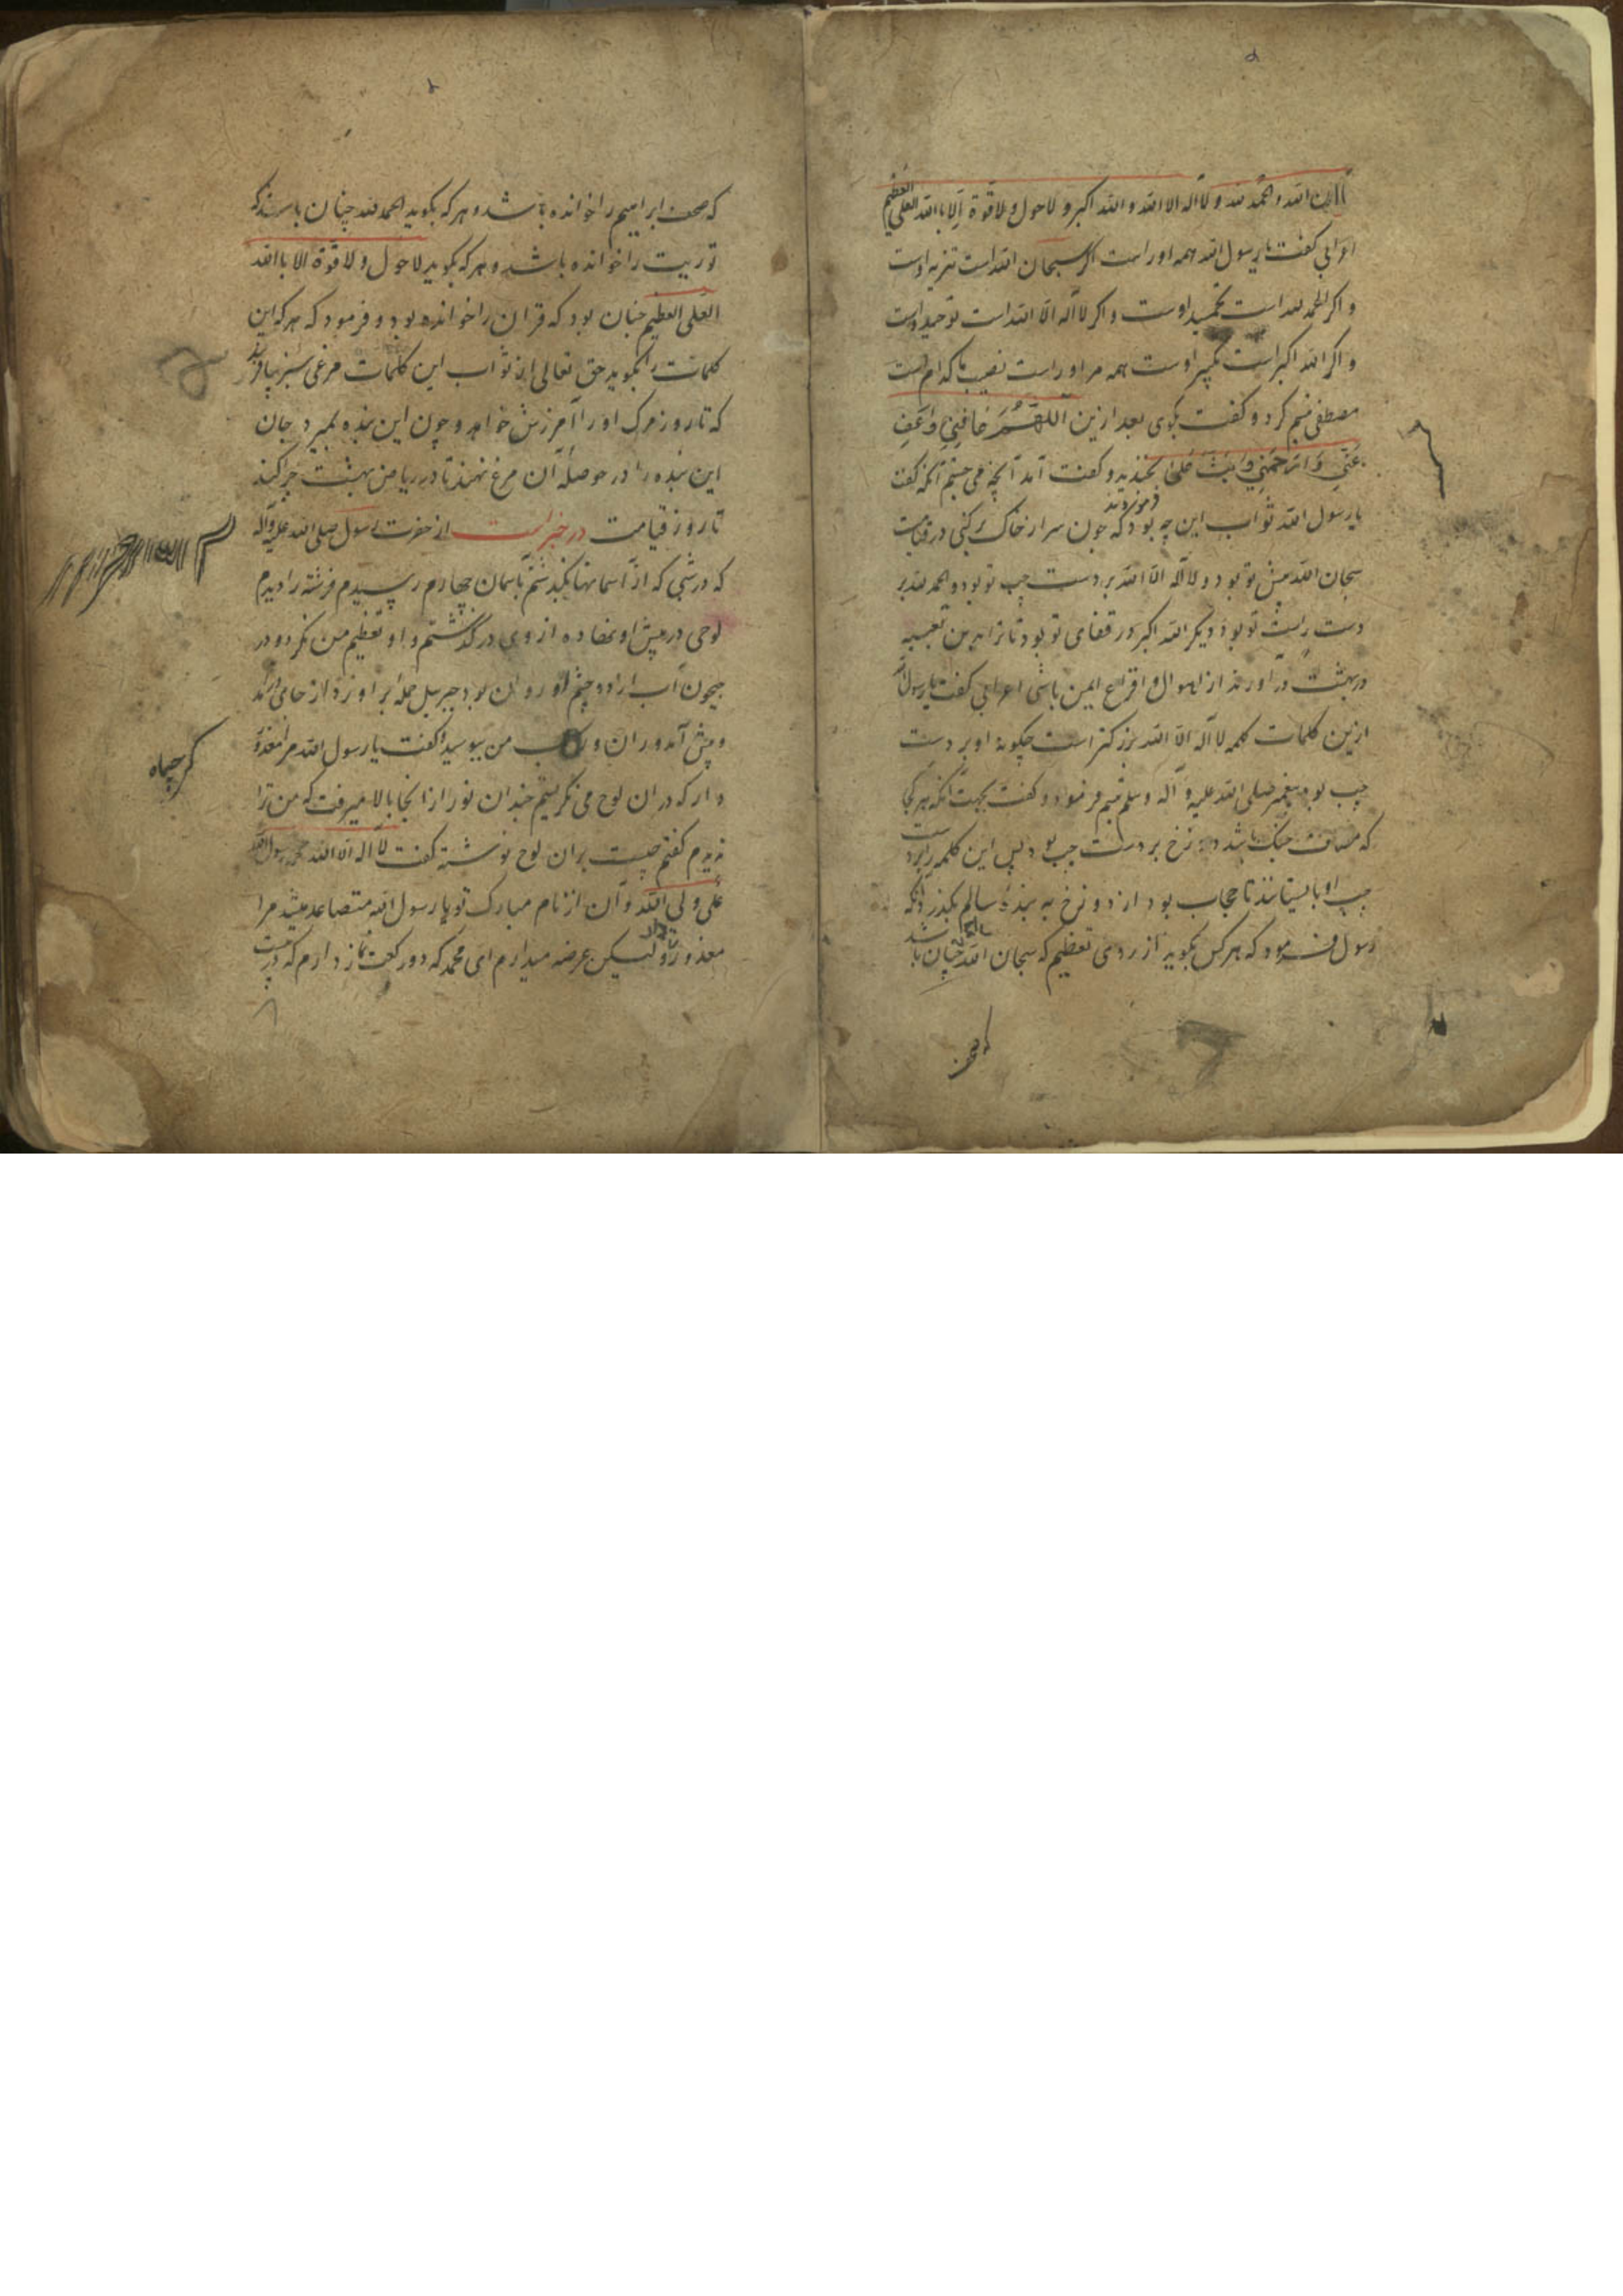 الله و الحمد لله و لا اله الا الله و الله اکبر و لا حول و لا قوة الا بالله العلی العظیم
اعرابی کفت یا رسول الله همه اوراست اکر سبحان الله است تنزیه اوست
و اکر الحمد لله است تحمید اوست و اکر لا اله الا الله است توحید اوست
و اکر الله اکبر است تکبیر اوست همه مر اوراست نصیب ما کدام است
مصطفی تبسم کرد و کفت بکوی بعد ازین اللهم عافنی واعف
عنی و ارحمنی و بخندید و کفت آمد آنچه می جستم آنکه کفت
یا رسول الله ثواب این چه بود فرمودند که چون سر از خاک برکنی در قیامت
سبحان الله پیش تو بود و لا اله الا الله بر دست چپ تو بود و الحمد لله بر
دست راست تو بود و دیکر الله اکبر در قفای تو بود تا ترا بدین تعبیه
در بهشت در آورند از اهوال و افزاع ایمن باشی اعرابی کفت یا رسول الله
ازین کلمات کلمه لا اله الا الله بزرکتر است چکونه او بر دست
چپ بود پیغمبر صلی الله علیه و آله و سلم تبسم فرمود و کفت بجهت آنکه هر کجا
که باشد دوزخ بر دست چپ بود پس این کلمه را بر دست
چپ او بایستانند تا حجاب بود از دوزخ به بنده سالم بکذرد آنکه
رسول فرمود که هر کس بکوید از روی تعظیم که سبحان الله چنان باشد
که صحف ابراهیم را خوانده باشد و هر که بکوید الحمد لله چنان باشد که
توریت را خوانده باشد و هر که بکوید لا حول و لا قوة الا بالله
العلی العظیم چنان بود که قران را خوانده بود و فرمود که هر که این
کلمات را بکوید حق تعالی از ثواب این کلمات مرغی سبز بیافریند
که تا روز مرک او را آمرزش خواهد و چون این بنده بمیرد جان
این بنده را در حوصله آن مرغ نهند تا در ریاض بهشت چرا کند
تا روز قیامت در خبر است از حضرت رسول صلی الله علیه و آله
که در شبی که از آسمانها بکذشتم بآسمان چهارم رسیدم فرشته را دیدم
لوحی در پیش او نهاده از وی در کذشتم و او تعظیم من نکرد و در
جیحون آب از دو چشم او روان بود جبرییل حمله بر او زد از جای
و پیش آمد و ران و رکاب من ببوسید و کفت یا رسول الله مرا معذور
دار که در ان لوح می نکریستم چندان نور از انجا بالا میرفت که من ترا
ندیدم کفتم چیست بران لوح نوشته کفت لا اله الا الله محمد رسول الله
علی ولی الله و آن از نام مبارک تو یا رسول الله متصاعد میشد مرا
معذور دار و لیکن عرضه میدارم ای محمد که دو رکعت نماز دارم که
کرچاه